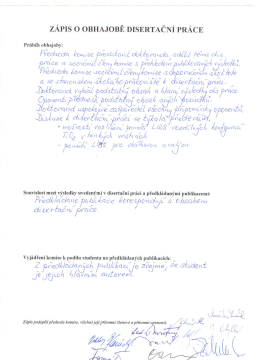 ZÁPIS O OBHAJOBĚ DISERTAČNÍ PRÁCE
Průběh obhajoby:
Předseda komise představil doktoranda, sdělil téma dis.
práce a seznámil členy komise s přehledem publikovaných výsledků.
Předseda komise seznámil členy komise s doporučením školitele
a se stanoviskem školícího pracoviště k disertační práci.
Doktorand vyložil podstatný obsah a hlavní výsledky dis. práce.
Oponenti přednesli podstatný obsah svých posudků.
Doktorand uspokojivě zodpověděl všechny připomínky oponentů.
Diskuse k disertační práci se týkala především:
- možnosti rozlišení pomocí LIBS
v tenkých vrstvách
- použití LIBS pro
Souvislost mezi výsledky uvedenými v disertační práci a předkládanými publikacemi:
Předkládané publikace korespondují s obsahem
disertační práce.
Vyjádření komise k podílu studenta na předkládaných publikacích:
Z předkládaných publikací je zřejmé, že student
je jejich hlavním autorem.
Zápis podepíší předseda komise, všichni její přítomní členové a přítomní oponenti.